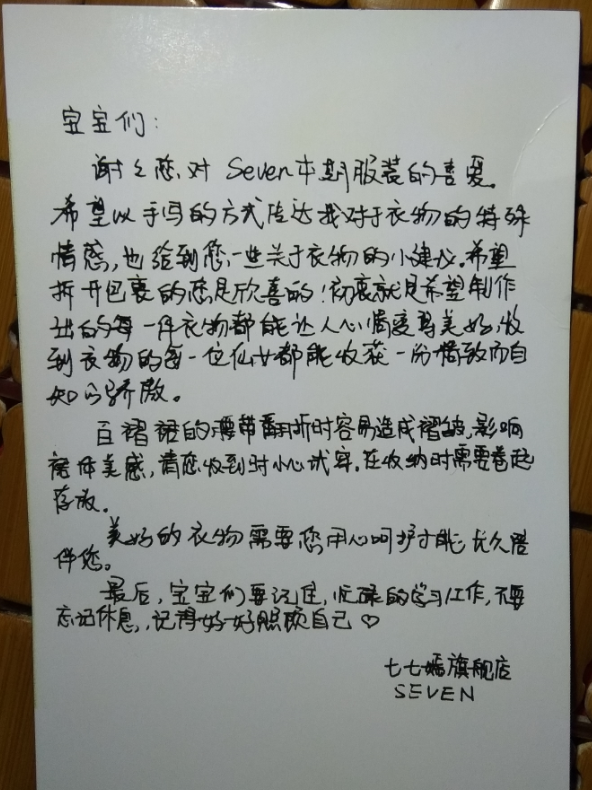 宝宝们:
谢谢您对Seven本期服装的喜爱。
希望以手写的方式传达我对于衣物的特殊
情感,也给到您一些关于衣物的小建议。希望
拆开包裹的您是欣喜的!初衷就是希望制作
出的每一件衣物都能让人心情变得美好,收
到衣物的每一位仙女都能收获一份精致而自
知的骄傲。
百褶裙的腰带翻折时容易造成褶皱,影响
裙体美感,请您收到时小心试穿。在收纳时需要卷起
存放。
美好的衣物需要您用心呵护才能长久陪
伴您。
最后,宝宝们要记住,忙碌的学习工作,不要
忘记休息,记得好好照顾自己♡
七七嫣旗舰店
SEVEN